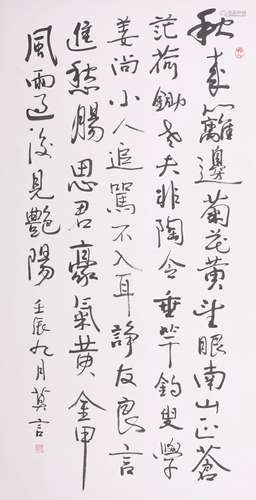 秋來籬邊菊花黃望眼南山正蒼
茫荷鋤老夫非陶令垂竿釣叟學
姜尚小人追罵不入耳諍友良言
進愁腸思君豪氣黃金甲
風雨過後見艷陽 壬辰九月莫言